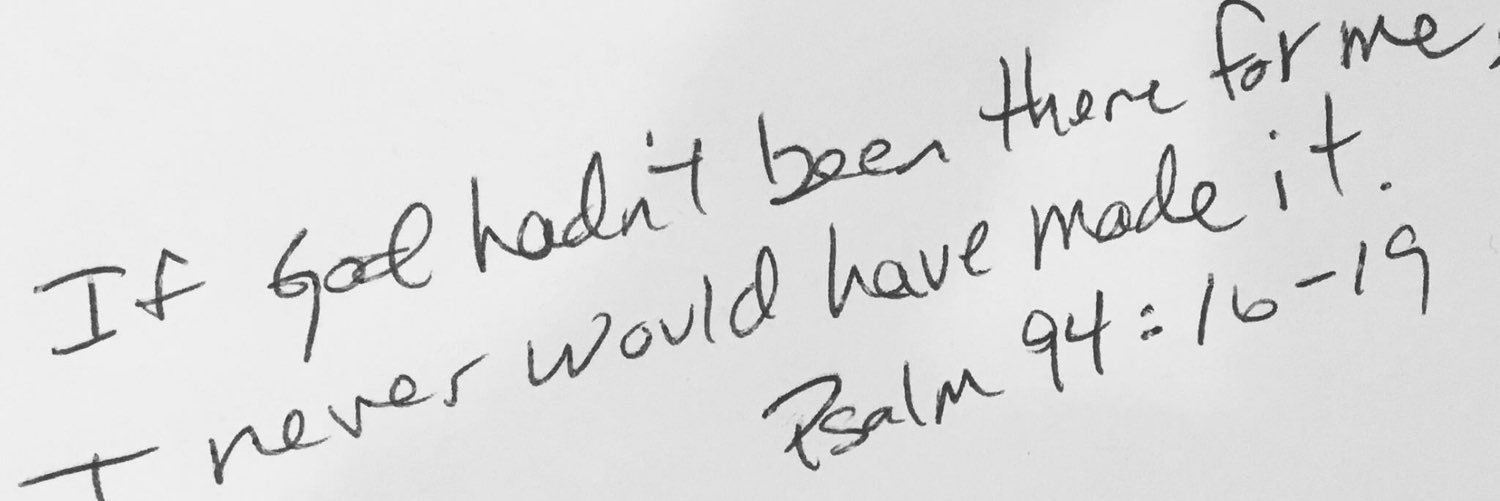 If God hadn't been there for me,
I never would have made it.
Psalm 94:16-19